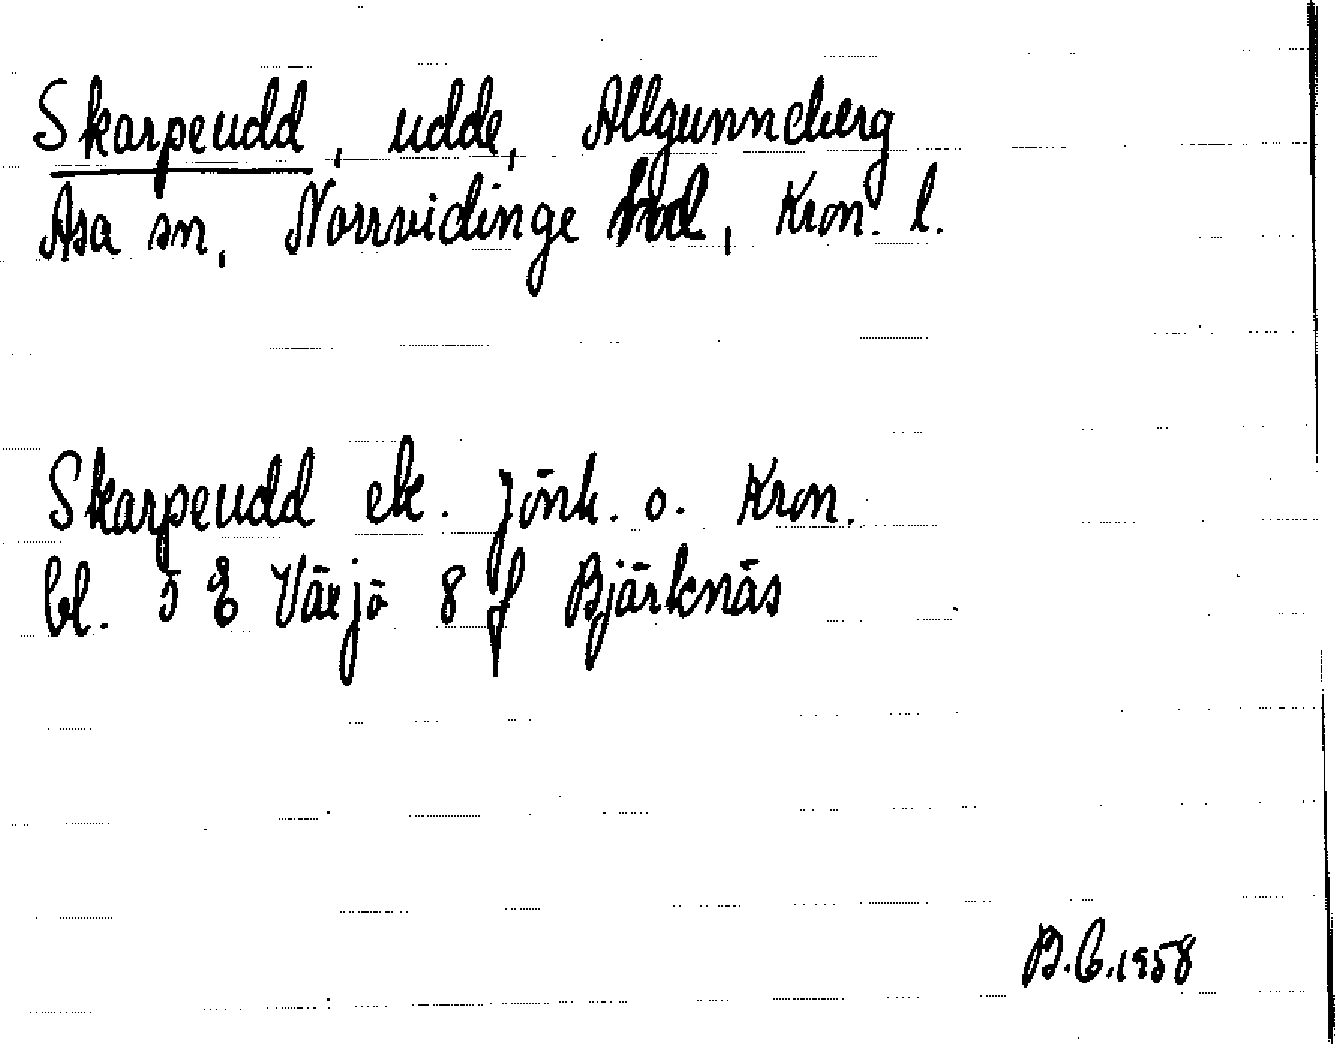 Skarpeudd, udde, Allgunneberg
Asa sn, Norrvidinge hd, Kron. l.
Skarpeudd ek. Jönk. o. Kron.
bl. 5 E Växjö 8 f Björknäs
B.C. 1958